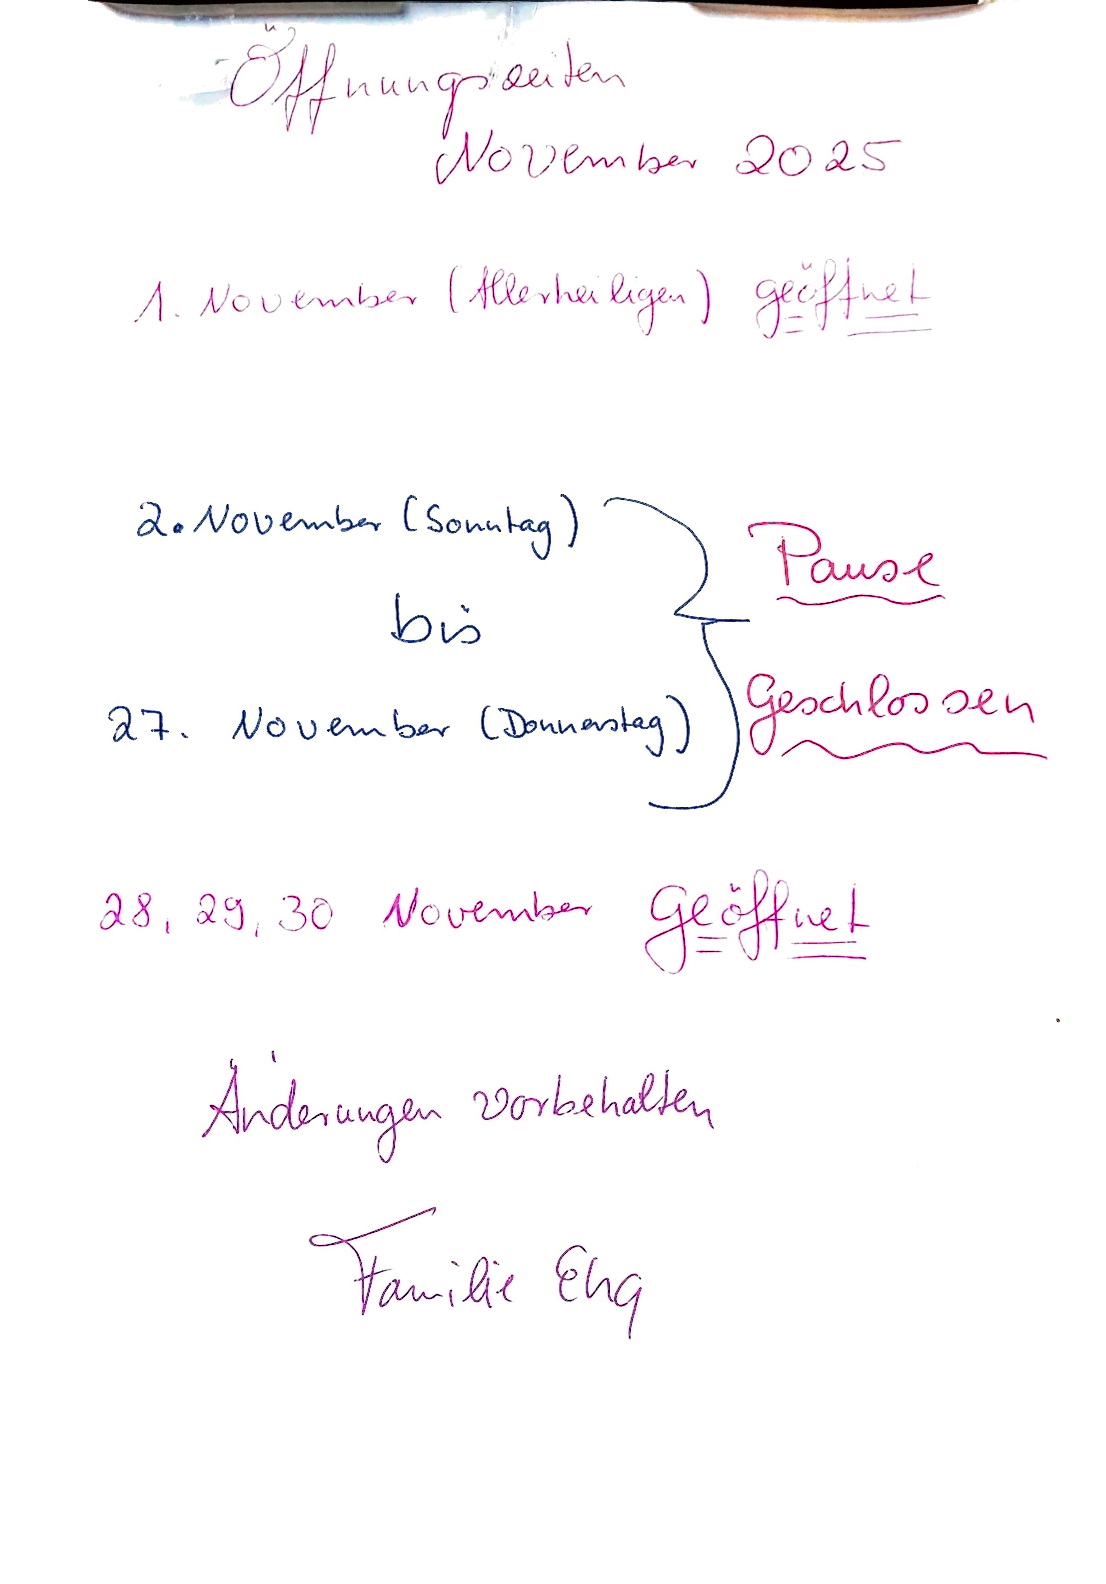 Öffnungszeiten
November 2025
1. November (Allerheiligen) geöffnet
2. November (Sonntag)
bis
27. November (Donnerstag)
Pause
Geschlossen
28, 29, 30 November Geöffnet
Änderungen vorbehalten
Familie